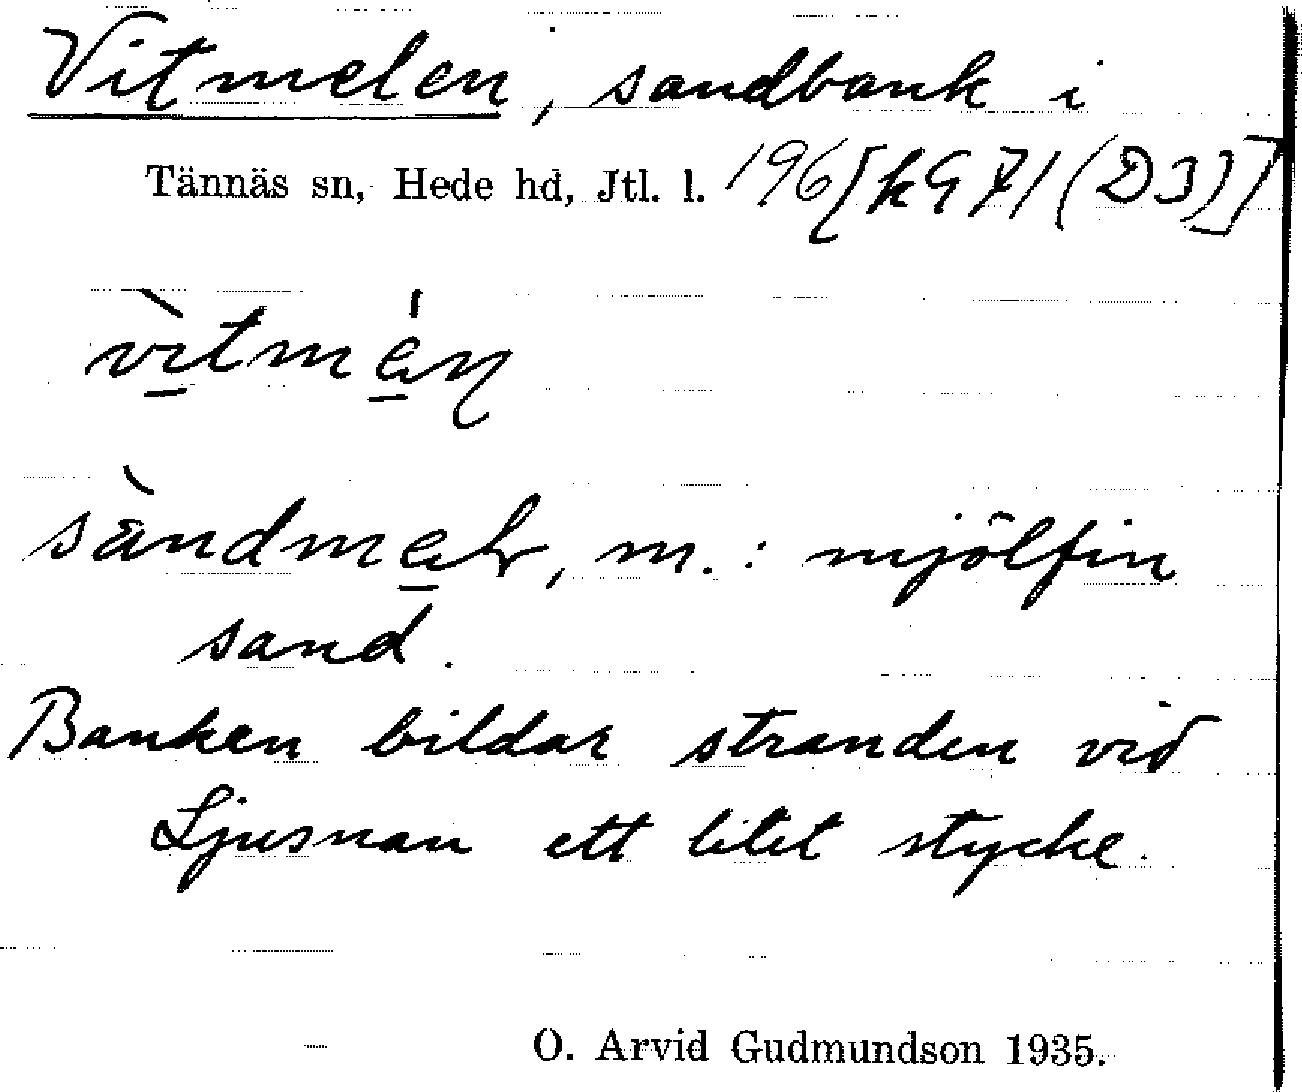 Vitmelen, sandbank i
Tännäs sn, Hede hd, Jtl. l. 196[k9 71 (D3)]
vìtmén
sàndmeL, m.: mjölfin
sand.
Banken bildar stranden vid
Ljusnan ett litet stycke.
O. Arvid Gudmundson 1935.